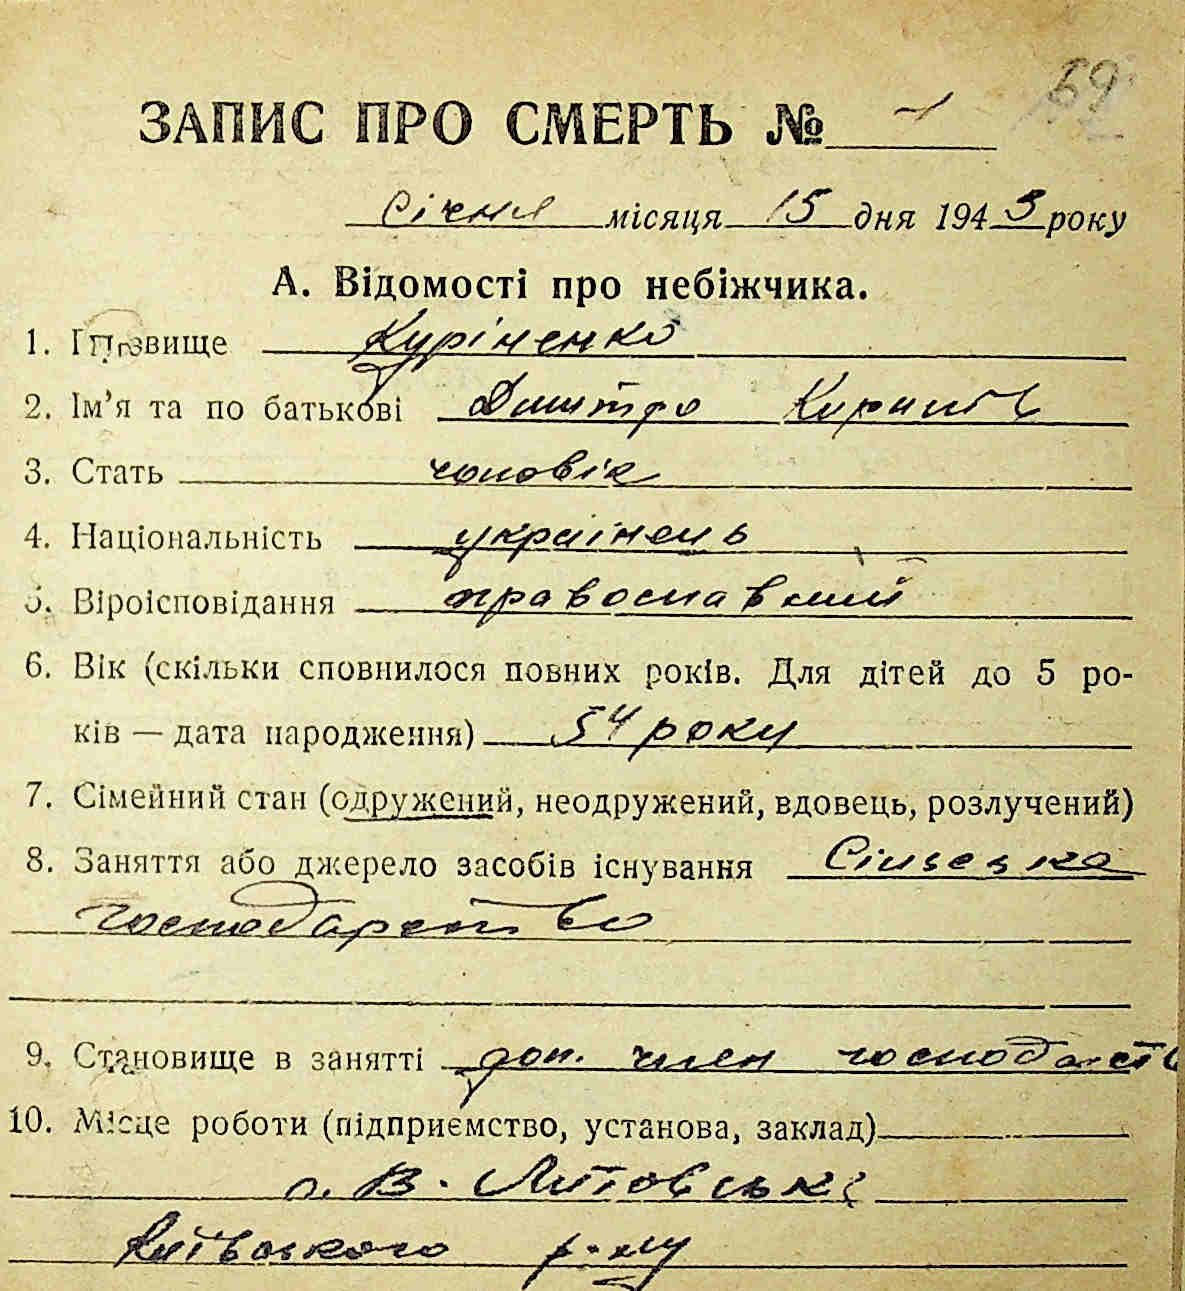 69
ЗАПИС ПРО СМЕРТЬ № 1
Січня місяця 15 дня 1943 року
А. Відомості про небіжчика.
1. Прізвище Куріненко
2. Ім'я та по батькові Дмитро
3. Стать чоловік
4. Національність українець
5. Віроісповідання православний
6. Вік (скільки сповнилося повних років. Для дітей до 5 ро-
ків — дата народження) 54 року
7. Сімейний стан (одружений, неодружений, вдовець, розлучений)
8. Заняття або джерело засобів існування Сільська
господарство
9. Становище в занятті доп. член
10. Місце роботи (підприємство, установа, заклад)
В. Литовська
Київського р-ну